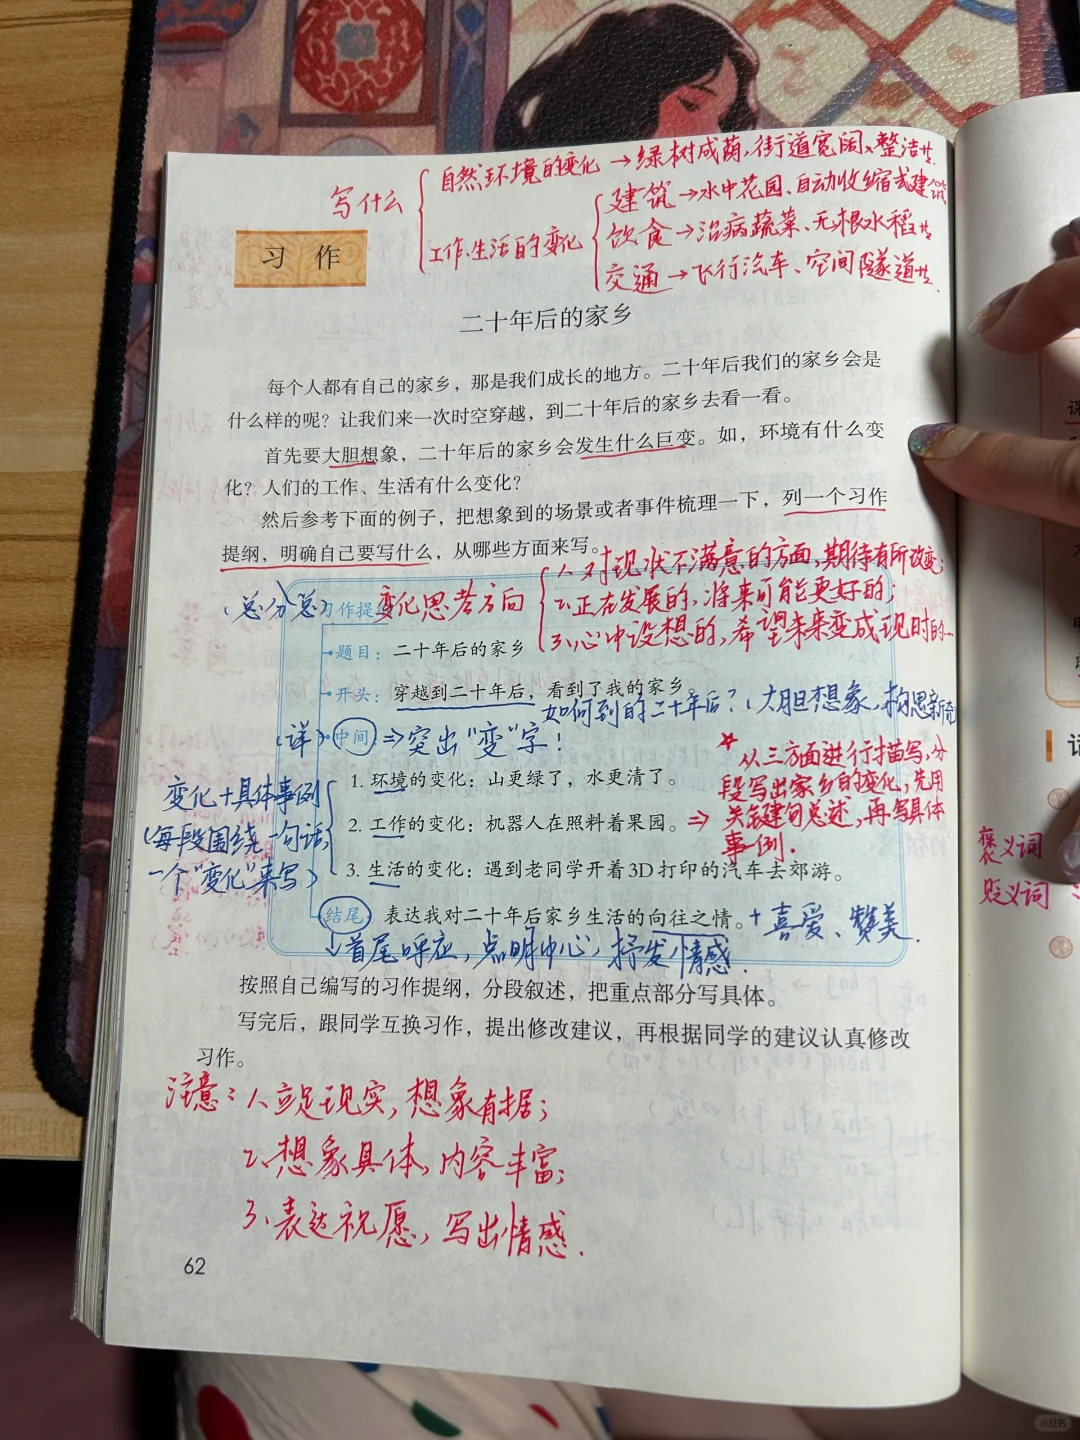 写什么
自然环境的变化→绿树成荫,街道宽阔、整洁
工作、生活的变化
建筑→水中花园、自动收缩式建筑
饮食→治病蔬菜、无根水稻
交通→飞行汽车、空间隧道
习 作
二十年后的家乡
每个人都有自己的家乡，那是我们成长的地方。二十年后我们的家乡会是
什么样的呢？让我们来一次时空穿越，到二十年后的家乡去看一看。
首先要大胆想象，二十年后的家乡会发生什么巨变。如，环境有什么变
化？人们的工作、生活有什么变化？
然后参考下面的例子，把想象到的场景或者事件梳理一下，列一个习作
提纲，明确自己要写什么，从哪些方面来写。
(总分总)
习作提纲
变化思考方向
1、对现状不满意的方面,期待有所改变;
2、正在发展的,将来可能更好的;
3、心中设想的,希望未来变成现时的
题目：二十年后的家乡
开头：穿越到二十年后，看到了我的家乡。
如何到的二十年后?(大胆想象,构思新奇
(详)
中间
⇒突出“变”字!
1. 环境的变化：山更绿了，水更清了。
2. 工作的变化：机器人在照料着果园。
3. 生活的变化：遇到老同学开着3D打印的汽车去郊游。
变化+具体事例
(每段围绕一句话,
一个“变化”来写)
⇒
从三方面进行描写,分
段写出家乡的变化,先用
关键句总述,再写具体
事例.
结尾
表达我对二十年后家乡生活的向往之情。
+喜爱、赞美.
↓首尾呼应,点明中心,抒发情感.
按照自己编写的习作提纲，分段叙述，把重点部分写具体。
写完后，跟同学互换习作，提出修改建议，再根据同学的建议认真修改
习作。
注意:1、立足现实,想象有据;
2、想象具体,内容丰富;
3、表达祝愿,写出情感.
62
褒义词
贬义词
小红书